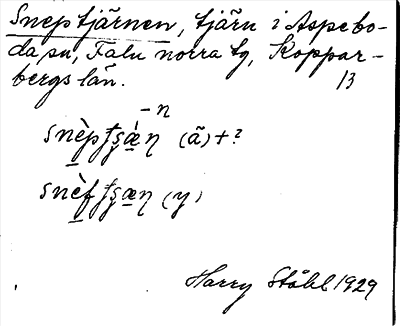 Sneptjärnen, tjärn i Aspebo-
da sn, Falu norra tg, Koppar-
bergs län. 13
-n
snèpţşæ̀η (ã) + ?
snèfţşæη (y)
Harry Ståhl 1929